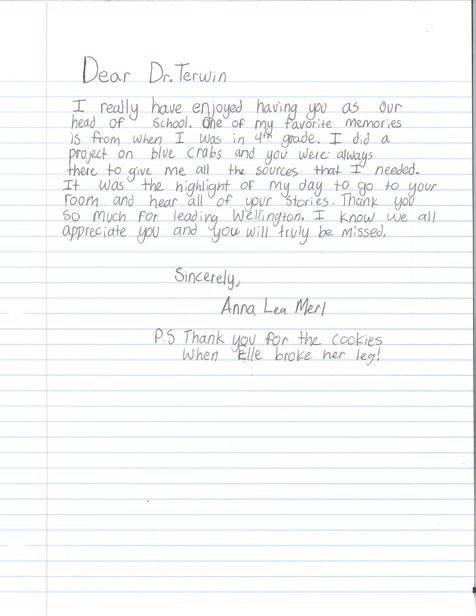 Dear Dr. Terwin
I really have enjoyed having you as our
head of school. One of my favorite memories
is from when I was in 4th grade. I did a
project on blue crabs and you were always
there to give me all the sources that I needed.
It was the highlight of my day to go to your
room and hear all of your stories. Thank you
so much for leading Wellington. I know we all
appreciate you and you will truly be missed.
Sincerely,
Anna Lea Merl
P.S Thank you for the cookies
When Elle broke her leg!